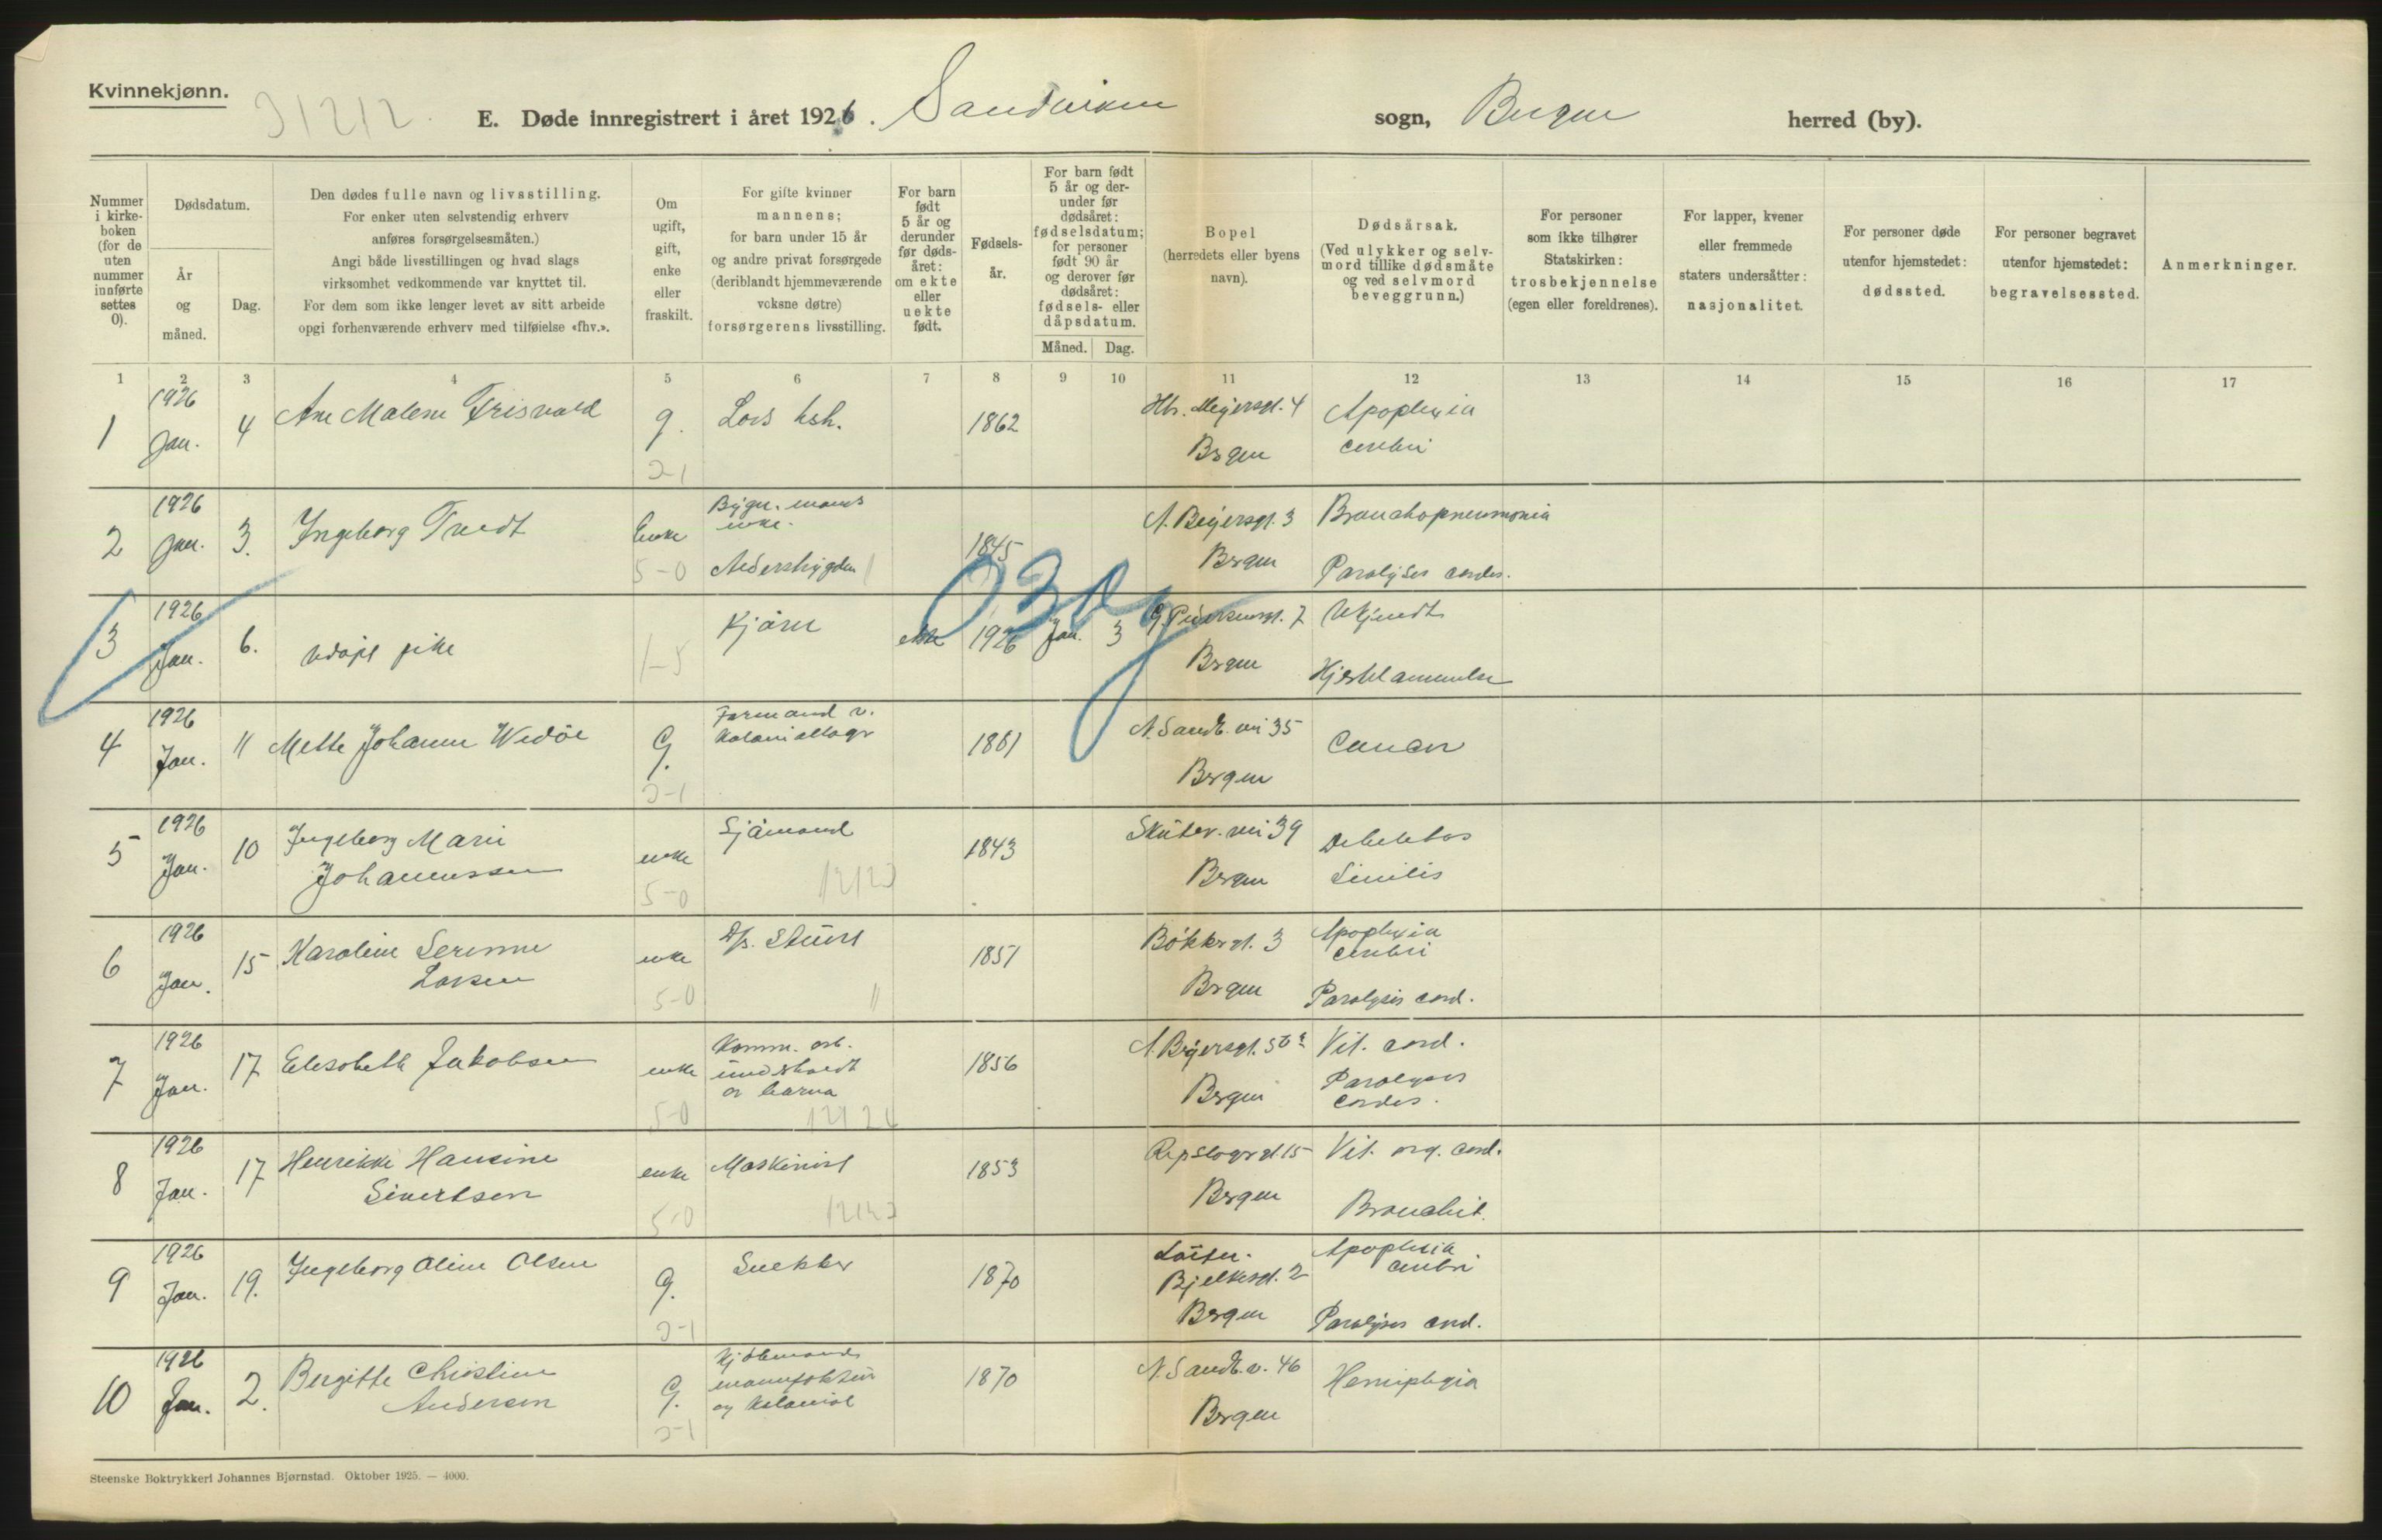 Kvinnekjønn.
E. Døde innregistrert i året 1926. Sandviken sogn, Bergen herred (by).
Nummer i kirkeboken (for de uten nummer innførte settes 0).
Dødsdatum.
År og måned.
Dag.
Den dødes fulle navn og livsstilling.
For enker uten selvstendig erhverv
anføres forsørgelsesmåten.)
Angi både livsstillingen og hvad slags
virksomhet vedkommende var knyttet til.
For dem som ikke lenger levet av sitt arbeide
opgi forhenværende erhverv med tilføielse «fhv.».
Om
ugift,
gift,
enke
eller
fraskilt.
For gifte kvinner
mannens;
for barn under 15 år
og andre privat forsørgede
(deriblandt hjemmeværende
voksne døtre)
forsørgerens livsstilling.
For barn
født
5 år og
derunder
før døds-
året:
om ekte
eller
uekte
født.
Fødsels-
år.
For barn født
5 år og der-
under før
dødsåret:
fødselsdatum;
for personer
født 90 år
og derover før
dødsåret:
fødsels- eller
dåpsdatum.
Måned. Dag.
Bopel
(herredets eller byens
navn).
Dødsårsak.
(Ved ulykker og selv-
mord tillike dødsmåte
og ved selvmord
beveggrunn.)
For personer
som ikke tilhører
Statskirken:
trosbekjennelse
(egen eller foreldrenes).
For lapper, kvener
eller fremmede
staters undersåtter:
nasjonalitet.
For personer døde
utenfor hjemstedet:
dødssted.
For personer begravet
utenfor hjemstedet:
begravelsessted.
Anmerkninger.
1 2 3 4 5 6 7 8 9 10 11 12 13 14 15 16 17
1 1926 Jan. 4 Ane Malene Frisvold g. 2-1 Los 1862 Hbr. Meyersgt. 4 Bergen Apoplexia cerebri
2 1926 Jan. 3. Ingeborg Tvedt Enke 5-0 Bygn. mands enke. Alderstrygden 1845 N. Beyersgt. 3 Bergen Bronchopneumonia Paralysis cordis.
3 1926 Jan. 6. udøpt pike 1-5 ekte 1926 Jan. 3 G. Pedersensgt. 7 Bergen Ukjendt Hjertelammelse
4 1926 Jan. 11 Mette Johanne Wedøe G. 2-1 Formand v. koloniallager 1861 N. Sandv. vei 35 Bergen Cancer
5 1926 Jan. 10 Ingeborg Marie Johannessen enke 5-0 Sjømand 1843 Skutev. vei 39 Bergen Debilitas Senilis
6 1926 Jan. 15 Karoline Serine Larsen enke 5-0 D/s. Stuert 1851 Bøkkergt. 3 Bergen Apoplexia cerebri Paralysis cord.
7 1926 Jan. 17 Elisabeth Jakobsen enke 5-0 Komm. arb. underholdt av barna 1856 N. Beyersgt. Bergen Vit. cord. Paralysis cordis.
8 1926 Jan. 17 Henrikke Hansine Sivertsen enke 5-0 Maskinist 1853 Repslagergt. 15 Bergen Vit. org. cord. Bronchit.
9 1926 Jan. 19. Ingeborg Oline Olsen G. 2-1 Snekker 1870 Bjelkesgt. 2 Bergen Apoplexia cerebri Paralysis cord.
10 1926 Jan. 2. Birgitte Christine Andersen G. 2-1 Kjøbmand manufaktur og kolonial 1870 N. Sandv. v. 46 Bergen Hemiplegia
Steenske Boktrykkeri Johannes Bjørnstad. Oktober 1925. — 4000.